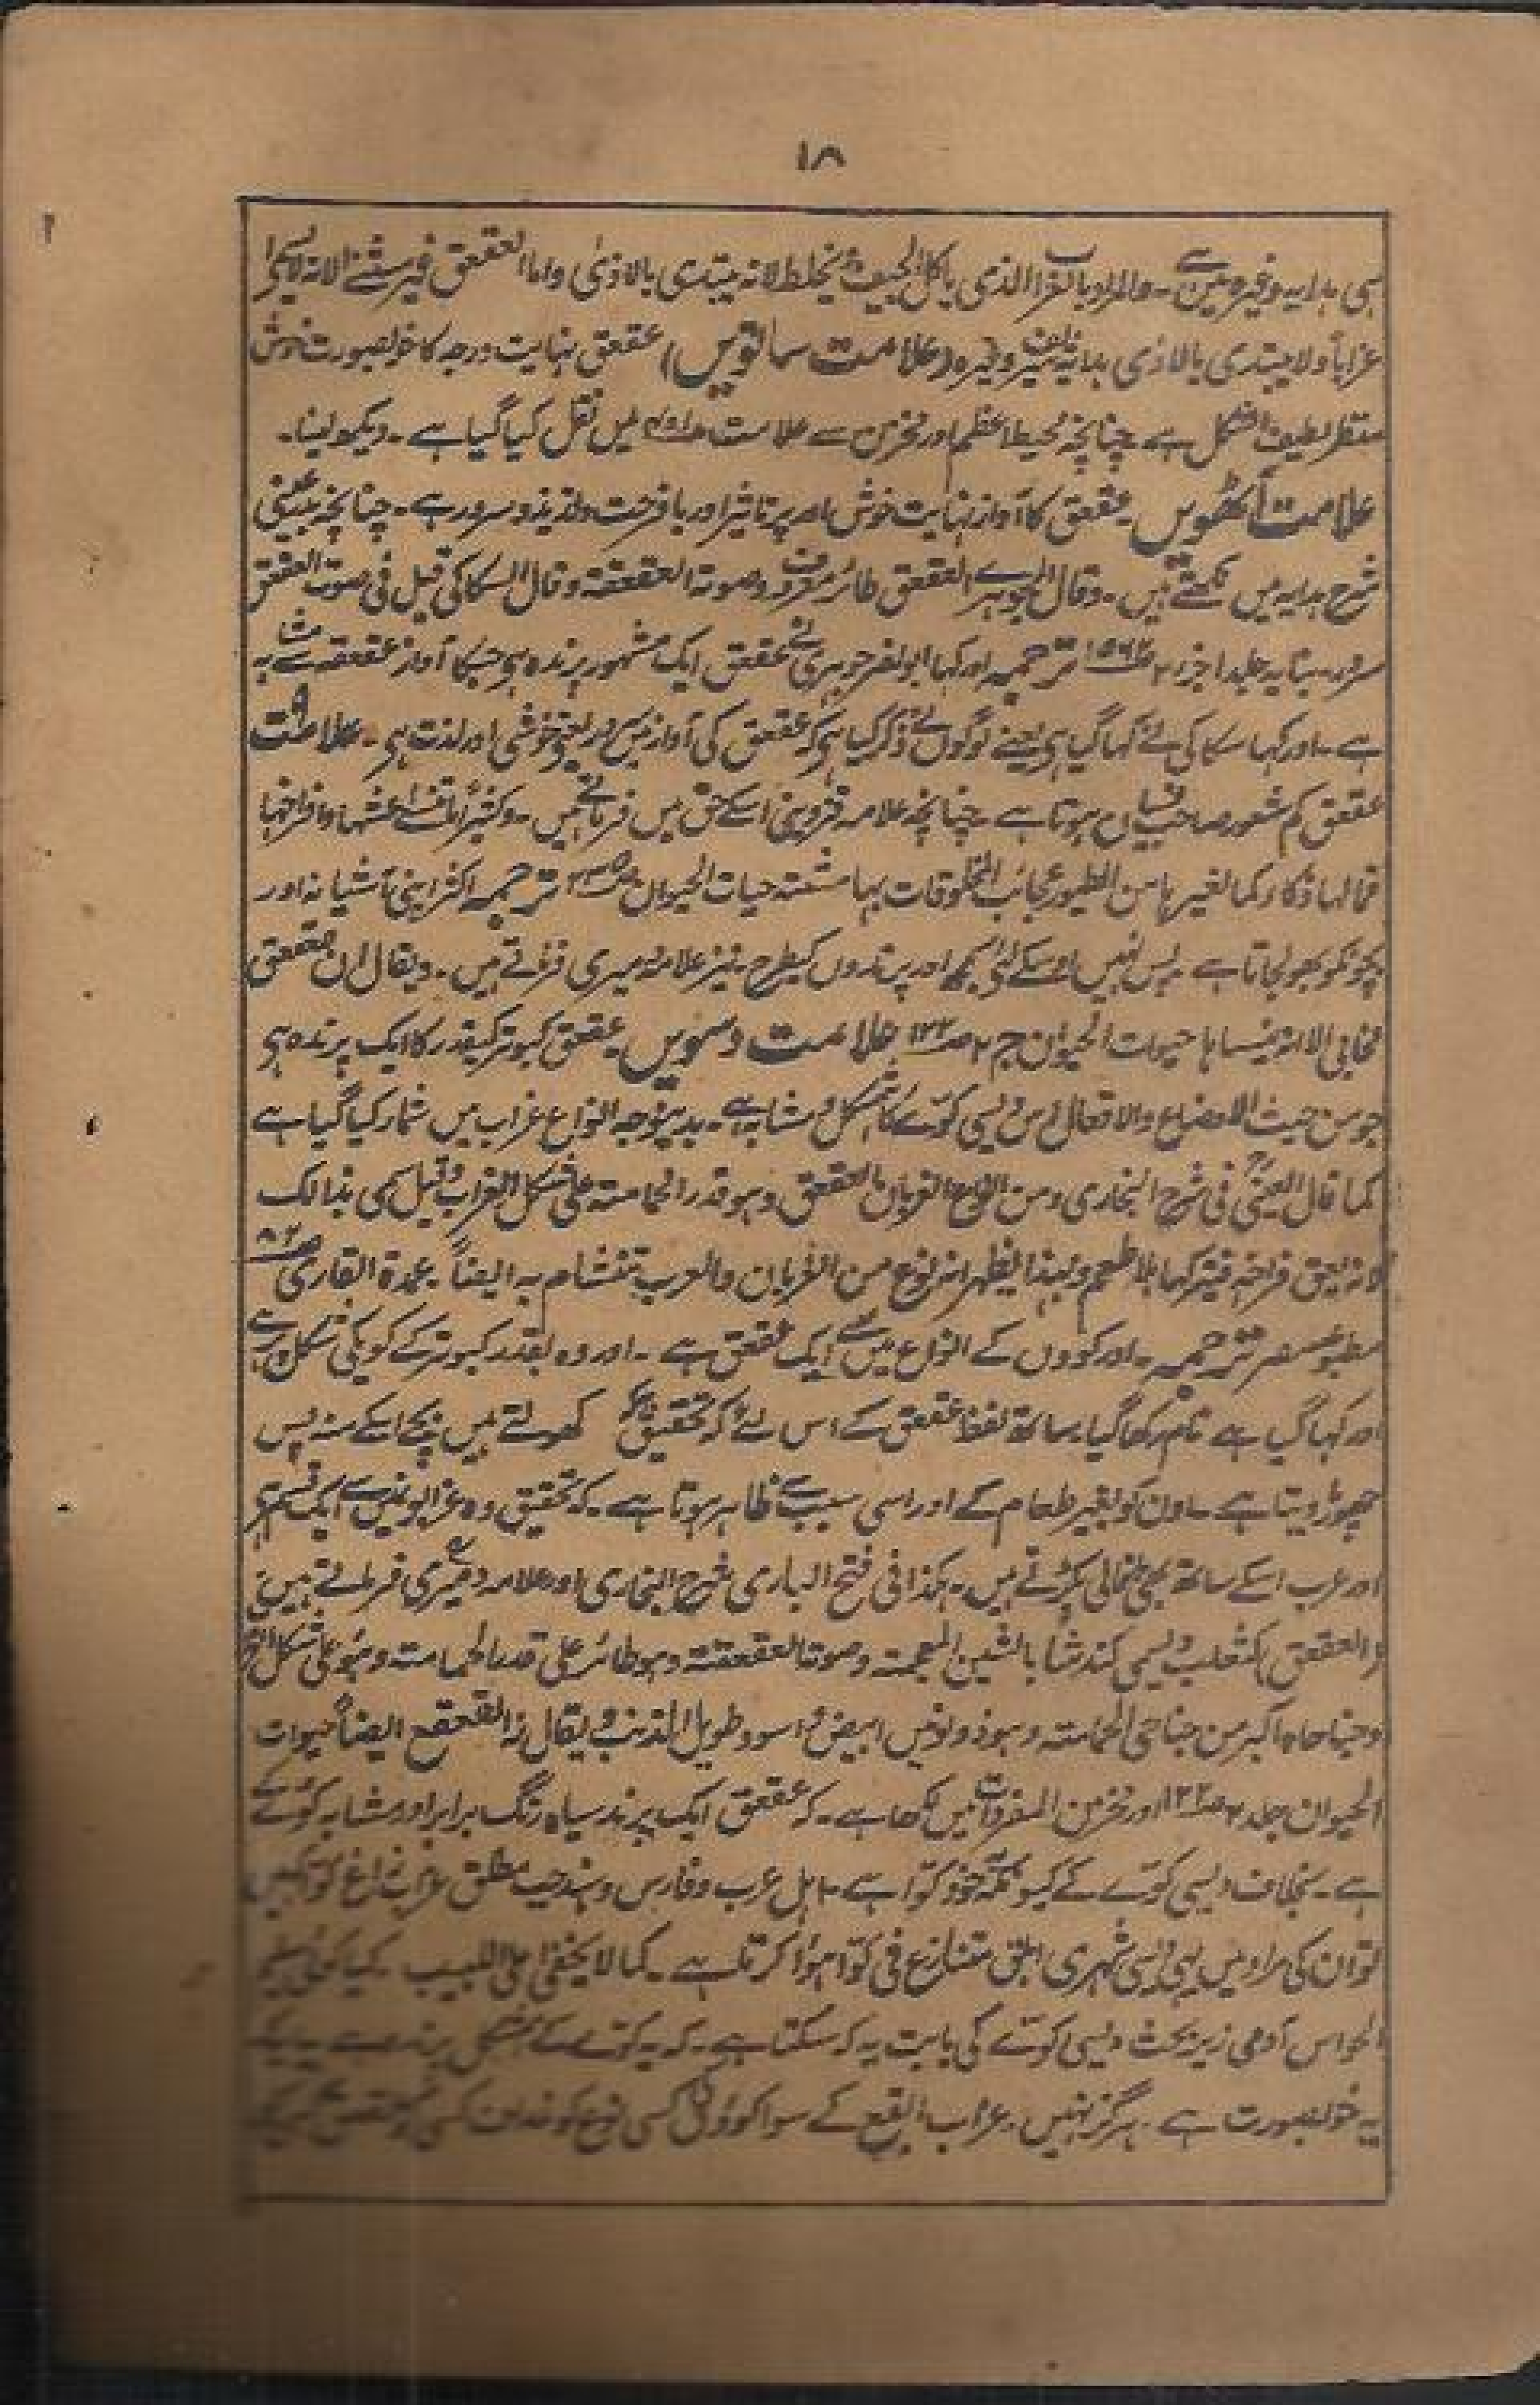 ۱۸
ہی ہدایہ وغیرہ میں ہے۔ والمراد بالغراب الذی یاکل الجیف ویخلط لانہ یبتدی بالاذی واما العقعق فغیر مستثنی لانہ لایسمی
غراباً ولا یبتدی بالاذی ہدایہ وغیرہ (علامت ساتویں) عقعق نہایت درجہ کا خوبصورت خوش
منظر لطیف الشکل ہے چنانچہ محیط اعظم اور مخزن سے علامت میں نقل کیا گیا ہے۔ دیکھ لینا۔
علامت آٹھویں۔ عقعق کا آواز نہایت خوش اور پر تاثیر اور بافرحت ولذیذ و سرور ہے۔ چنانچہ عینی
شرح ہدایہ میں لکھتے ہیں۔ وقال الجوہری العقعق طائر معروف وصوتہ العقعقۃ وقال السکاکی قیل فی صوت العقعق
سرور۔ بنایہ جلد ۱ جزء ۲ ترجمہ اور کہا ابو نصر جوہری نے عقعق ایک مشہور پرندہ ہی جسکا آواز عقعقہ سے مشابہ
ہے۔ اور کہا سکاکی نے کہا گیا ہی یعنے لوگوں نے ذکر کیا ہی کہ عقعق کی آواز میں سرور یعنی خوشی اور لذت ہی۔ علامت ۹
عقعق کم شعور صاحب نسیان ہوتا ہے۔ چنانچہ علامہ قزوینی اسکے حق میں فرماتے ہیں۔ وکثیراً ما تنسی عشہا وافراخہا
فما لہا ذکاء کما لغیرہا من الطیور عجائب المخلوقات بہامشہ حیات الحیوان ترجمہ اکثر اپنی آشیانہ اور
بچونکو بھول جاتا ہے۔ پس نہیں اوسکے لئے سمجھ اور پرندوں کیطرح۔ نیز علامہ دمیری فرماتے ہیں۔ ویقال ان العقعق
الا انہ ینساہا حیوت الحیوان ج ۲ علامت دسویں۔ عقعق کبوتر کیقدر کا ایک پرندہ ہی
جو من حیث الاوضاع والافعال اس دیسی کوّے کا ہمشکل و مشابہ ہے۔ بدینوجہ انواع غراب میں شمار کیا گیا ہے
کما قال العینی فی شرح البخاری ومن انواع الغربان العقعق وہو قدر الحمامۃ علی شکل الغراب وقیل سمی بذالک
لانہ یعق فراخہ فیترکہا بلا طعم وبہذا یظہر انہ نوع من الغربان والعرب تتشاءم بہ ایضاً۔ عمدۃ القاری
مطبوعہ مصر ترجمہ۔ اور کووں کے انواع میں سے ایک عقعق ہے۔ اور وہ بقدر کبوتر کے کویکی شکل پر ہے
اور کہا گیا ہے نام رکھا گیا ساتھ لفظ عقعق کے اس لئے کہ تحقیق کھولتے ہیں بچے اسکے منہ پس
چھوڑ دیتا ہے۔ اون کو بغیر طعام کے اور اسی سبب سے ظاہر ہوتا ہے۔ کہ تحقیق وہ غرابونمیں سے ایک قسم ہی
اور عرب اسکے ساتھ بھی بدفالی پکڑتے ہیں۔ ہکذا فی فتح الباری شرح البخاری اور علامہ دمیری فرماتے ہیں
(العقعق) کثعلب ویسمی کندشا بالشین المعجمۃ وصوتہ العقعقۃ وہو طائر علی قدر الحمامۃ وہو علی شکل الغراب
وجناحاہ اکبر من جناحی الحمامۃ وہو ذولونین ابیض واسود طویل الذنب ویقال لہ القعقع ایضاً حیوات
الحیوان جلد ۲ اور مخزن المفردات میں لکھا ہے۔ کہ عقعق ایک پرند سیاہ رنگ برابر اور مشابہ کوّے کے
ہے۔ بخلاف دیسی کوّے کے کیونکہ یہ خود کوّا ہے۔ اہل عرب و فارس و ہند جب مطلق غراب زاغ کوّا کہیں
تو ان کی مراد یہی دیسی شہری ابلق متنازع فی کوّا ہوا کرتا ہے۔ کما لا یخفی علی اللبیب۔ کیا کوئی
الحواس آدمی زیر بحث دیسی کوّے کی بابت یہ کہ سکتا ہے۔ کہ یہ کوّے کے ہمشکل پرند ہے
یہ خوبصورت ہے۔ ہرگز نہیں۔ غراب البقع کے سوا کووں کی کسی نوع کو